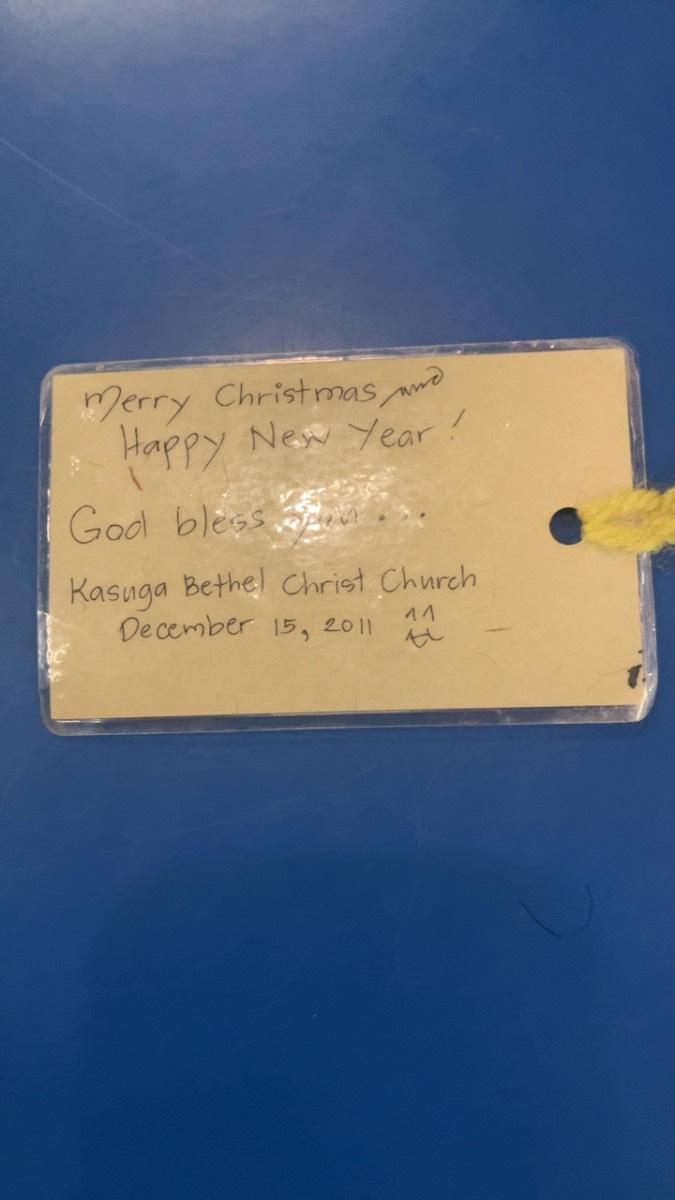 Merry Christmas and
Happy New Year!
God bless you...
Kasuga Bethel Christ Church
December 15, 2011